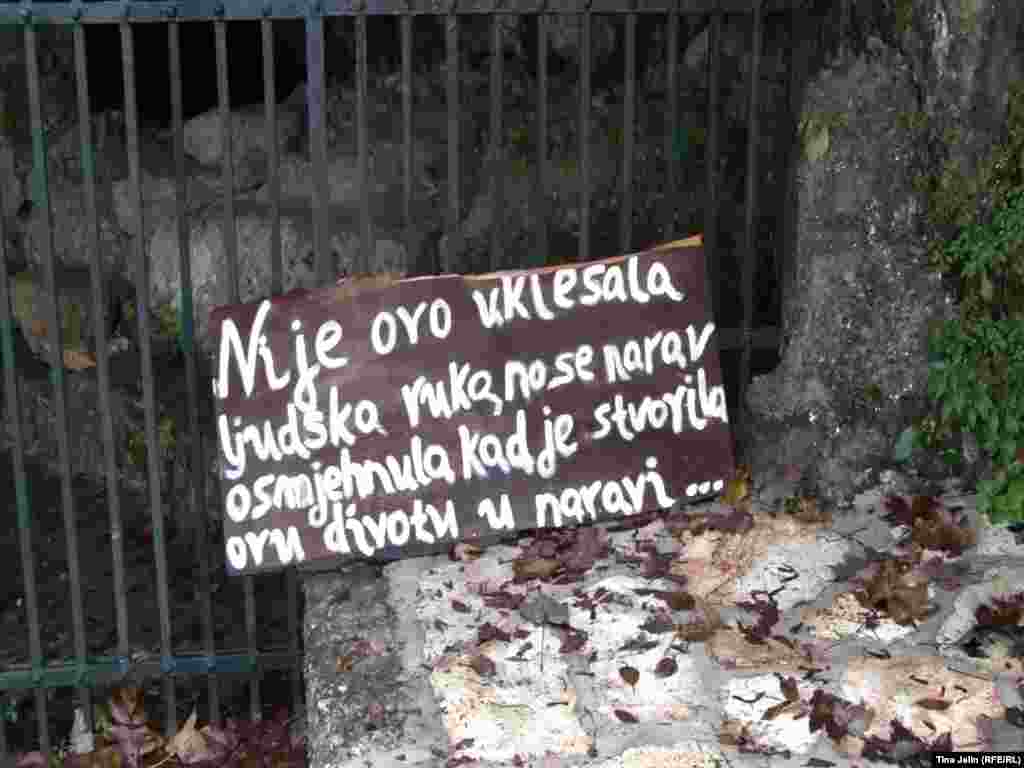 Nije ovo uklesala
ljudska ruka, no se narav
osmjehnula kad je stvorila
ovu divotu u naravi ...
Tina Jelin (RFE/RL)